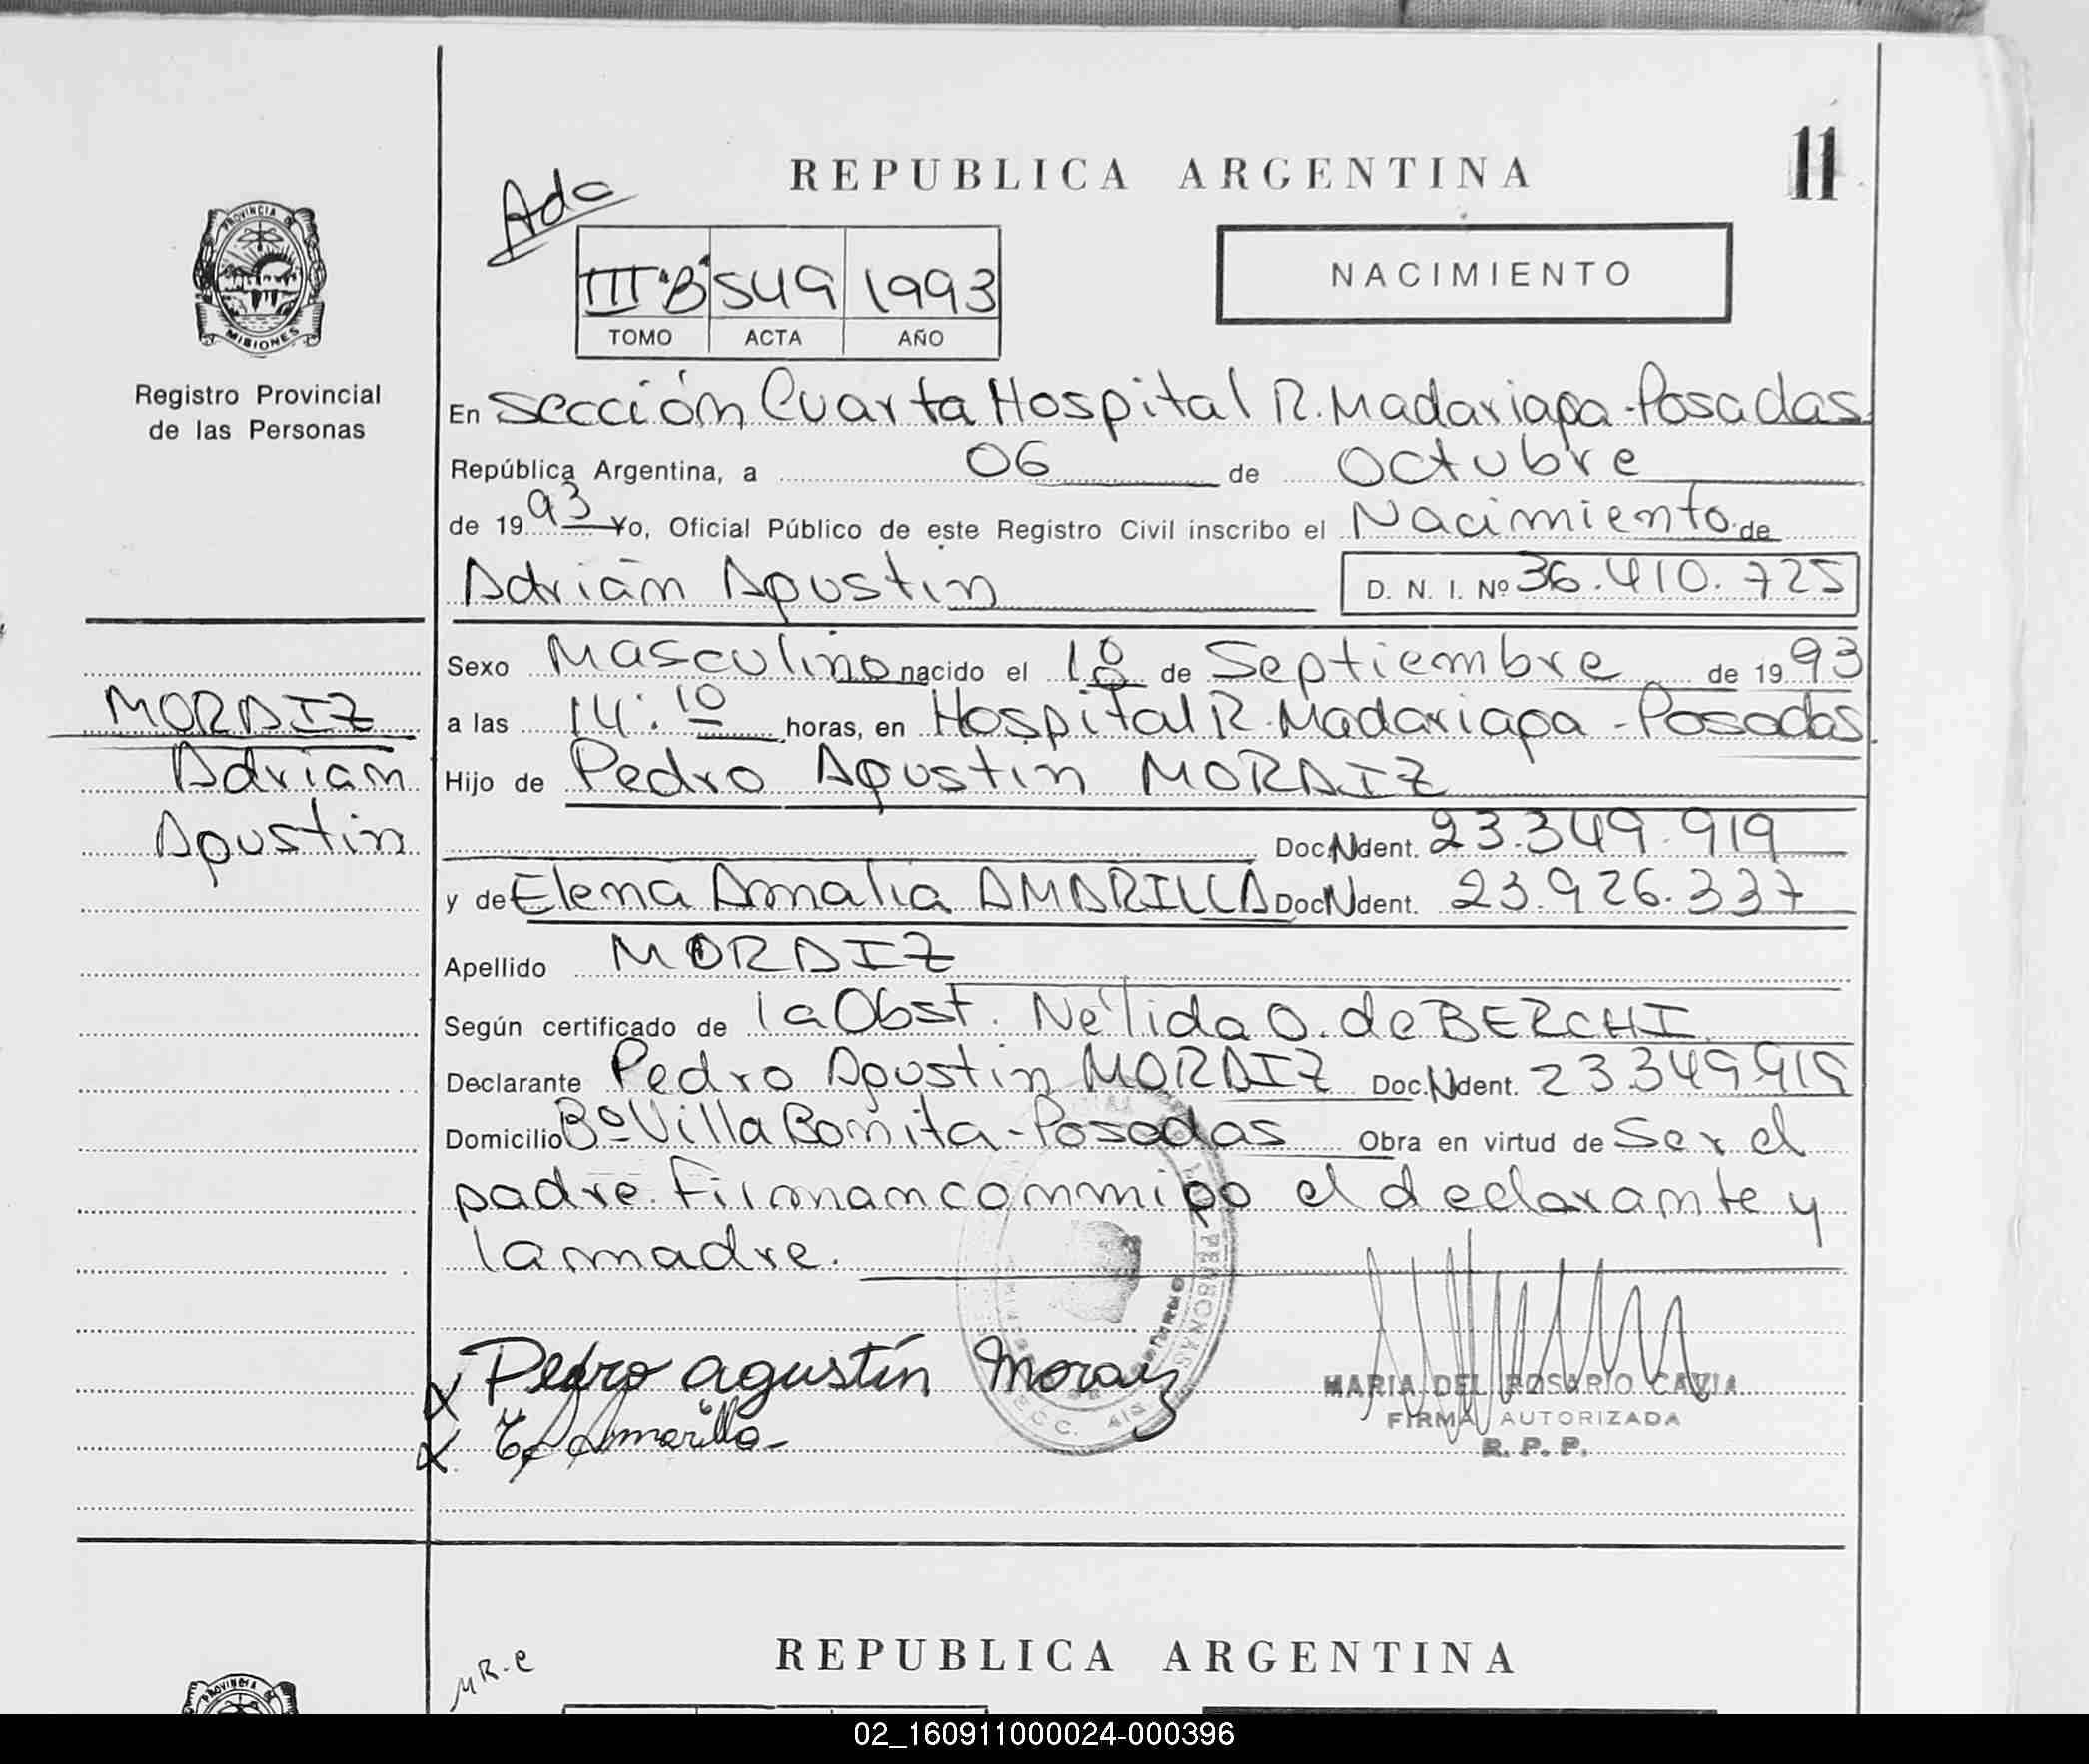 11
REPUBLICA ARGENTINA
Ada
NACIMIENTO
III "B" 549 1993
TOMO ACTA AÑO
PROVINCIA DE
MISIONES
Registro Provincial
de las Personas
En Sección Cuarta Hospital R. Madariaga - Posadas
República Argentina, a 06 de Octubre
de 1993 Yo, Oficial Público de este Registro Civil inscribo el Nacimiento de
Adrian Agustin D. N. I. Nº 36.410.725
Sexo Masculino nacido el 18 de Septiembre de 1993
MORAIZ
Adrian
Agustin
a las 14:10 horas, en Hospital R. Madariaga - Posadas.
Hijo de Pedro Agustin MORAIZ
Doc. N Ident. 23.349.919
y de Elena Amalia AMARILLA Doc N Ident. 23.926.337
Apellido MORAIZ
Según certificado de la Obst. Nélida O. de BERCHI
Declarante Pedro Agustin MORAIZ Doc. N Ident. 23.349.919
Domicilio Bº Villa Bonita - Posadas Obra en virtud de Ser el
padre. Firman conmigo el declarante y
la madre.
Pedro agustín Moraiz
E. A. Amarilla
MARIA DEL ROSARIO CAZIA
FIRMA AUTORIZADA
R. P. P.
MR-e
REPUBLICA ARGENTINA
02_160911000024-000396